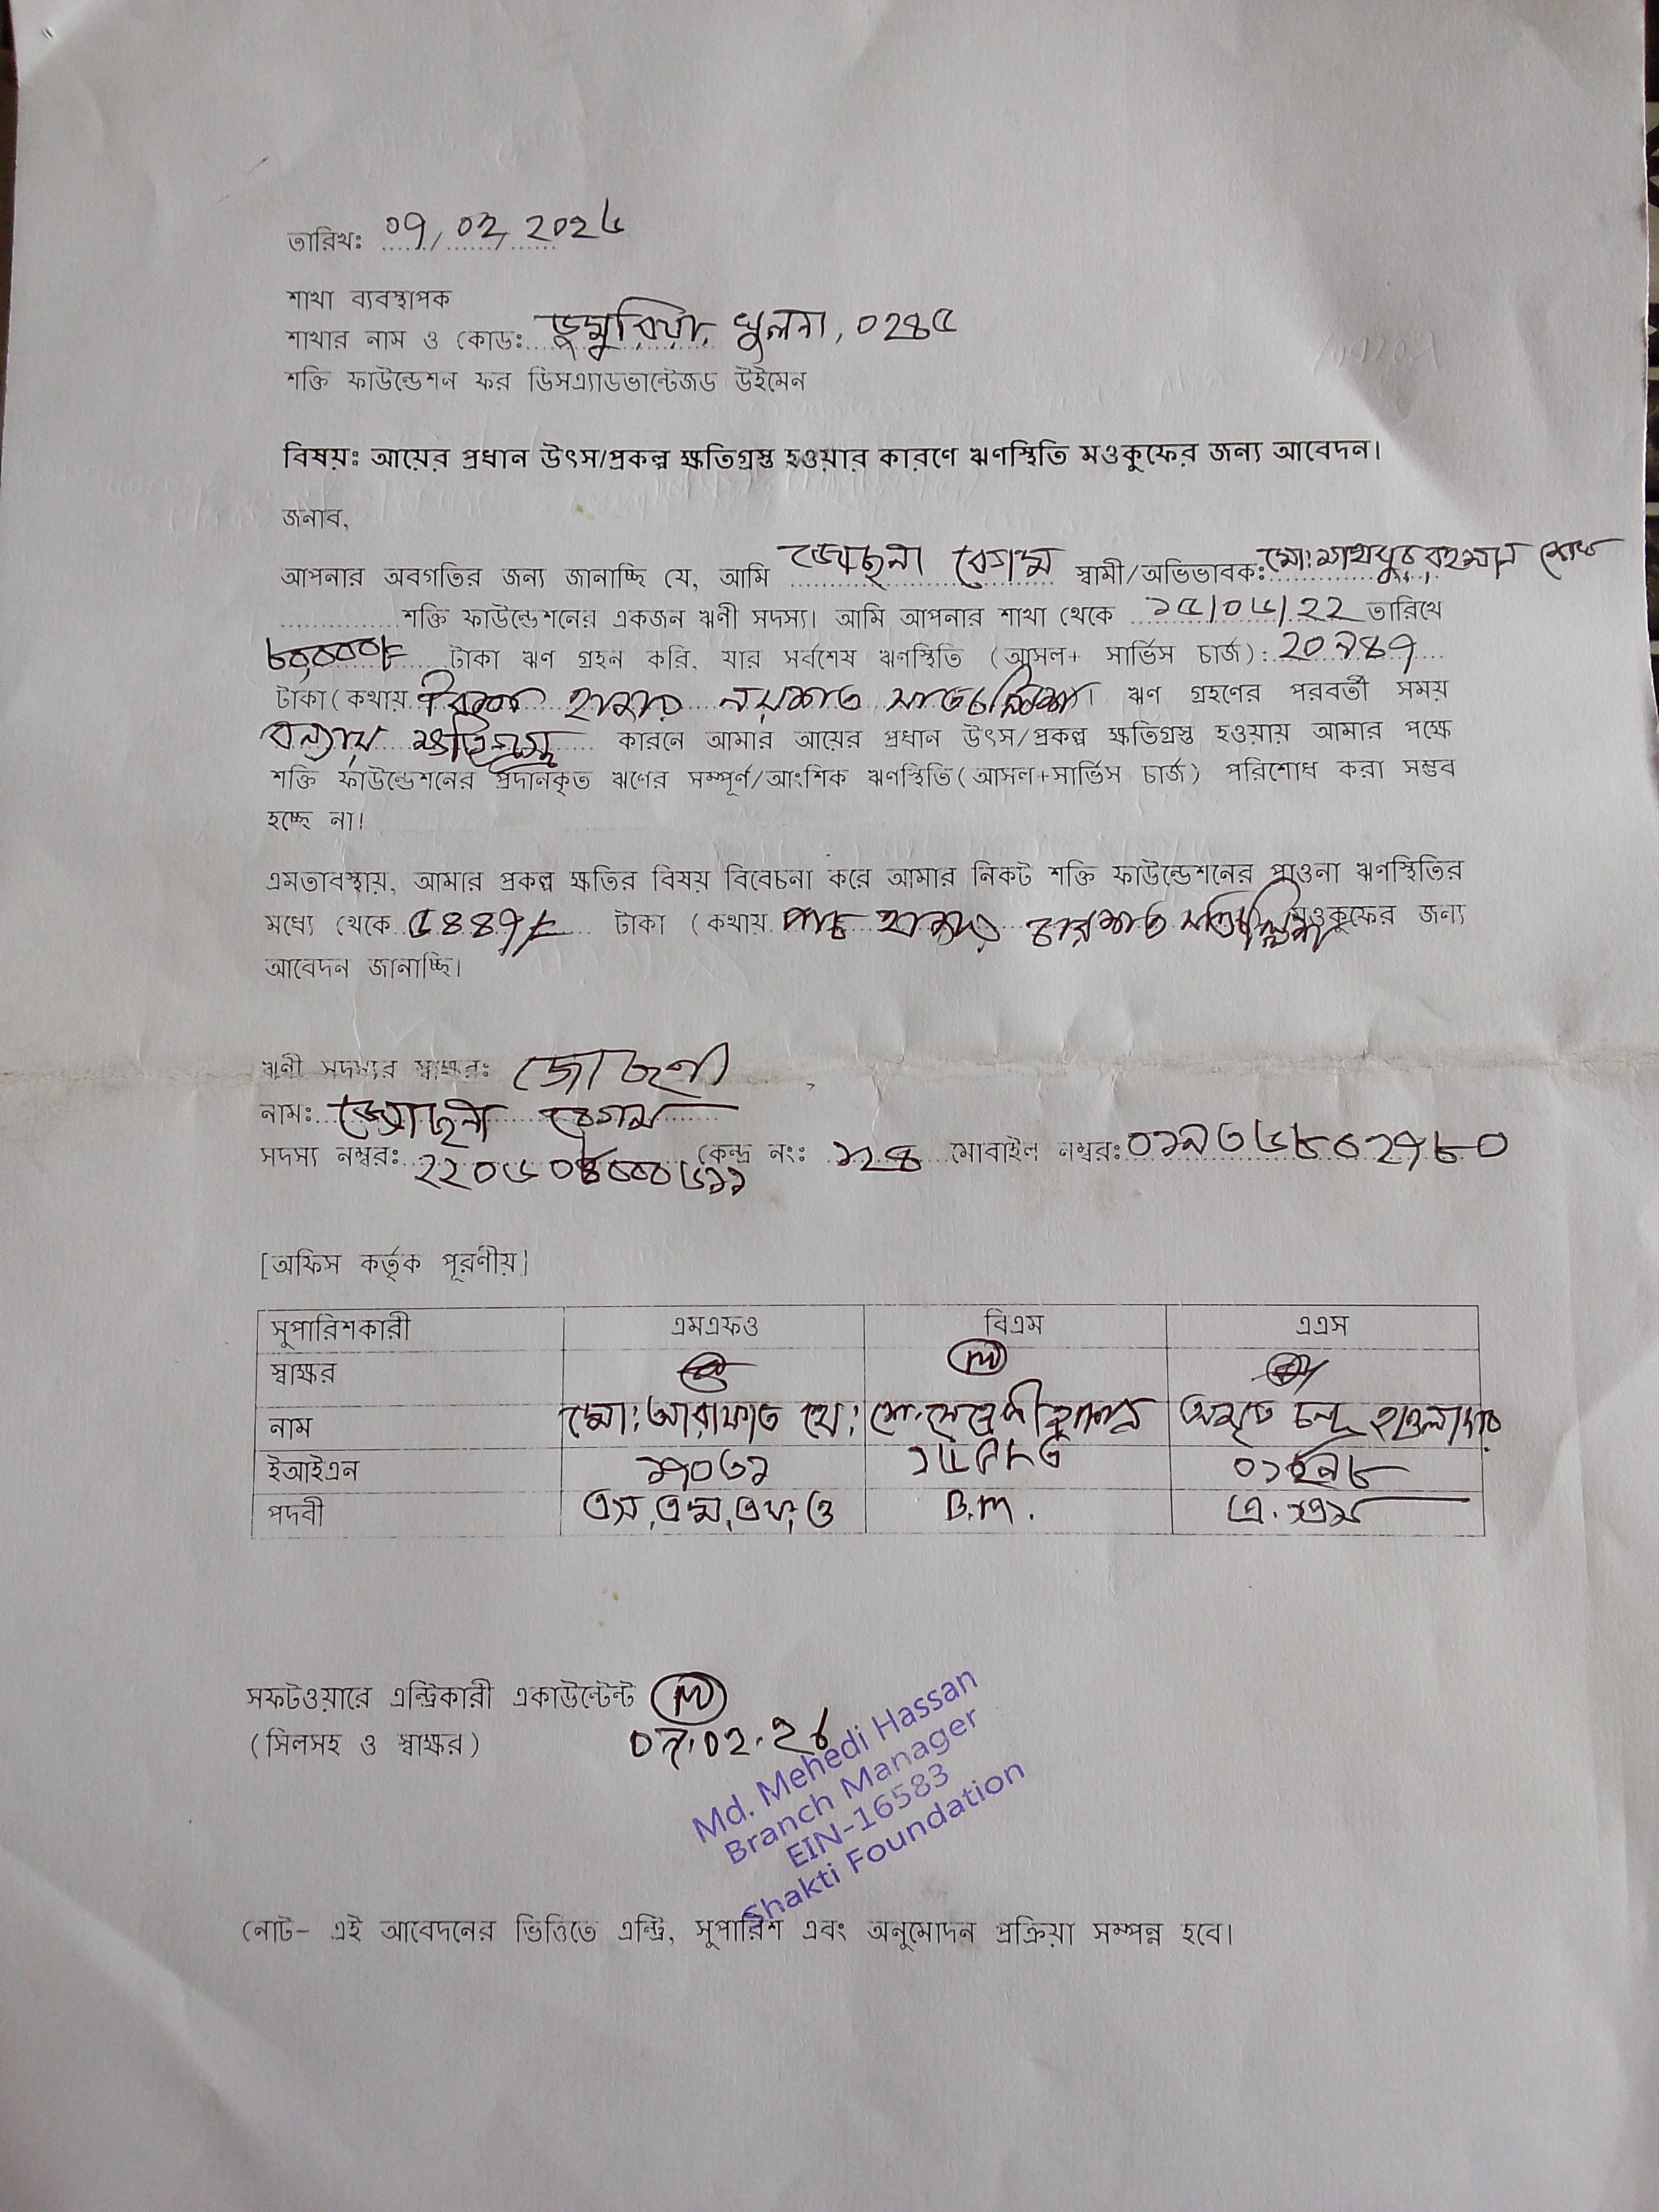 তারিখঃ ০৭/০২/২০২৬
শাখা ব্যবস্থাপক
শাখার নাম ও কোডঃ ডুমুরিয়া, খুলনা, ০২৪৫
শক্তি ফাউন্ডেশন ফর ডিসএ্যাডভান্টেজড উইমেন
বিষয়ঃ আয়ের প্রধান উৎস/প্রকল্প ক্ষতিগ্রস্ত হওয়ার কারণে ঋণস্থিতি মওকুফের জন্য আবেদন।
জনাব,
আপনার অবগতির জন্য জানাচ্ছি যে, আমি জোছনা বেগম স্বামী/অভিভাবকঃ মো: রহমান শেখ
শক্তি ফাউন্ডেশনের একজন ঋণী সদস্য। আমি আপনার শাখা থেকে ১৫/০৬/২২ তারিখে
টাকা ঋণ গ্রহন করি, যার সর্বশেষ ঋণস্থিতি (আসল+ সার্ভিস চার্জ): ২০৯৪৭
টাকা(কথায় হাজার নয়শত সাতচল্লিশ। ঋণ গ্রহণের পরবর্তী সময়
বন্যায় ক্ষতিগ্রস্থ কারনে আমার আয়ের প্রধান উৎস/প্রকল্প ক্ষতিগ্রস্ত হওয়ায় আমার পক্ষে
শক্তি ফাউন্ডেশনের প্রদানকৃত ঋণের সম্পূর্ণ/আংশিক ঋণস্থিতি(আসল+সার্ভিস চার্জ) পরিশোধ করা সম্ভব
হচ্ছে না।
এমতাবস্থায়, আমার প্রকল্প ক্ষতির বিষয় বিবেচনা করে আমার নিকট শক্তি ফাউন্ডেশনের প্রাওনা ঋণস্থিতির
মধ্যে থেকে ৫৪৪৭/= টাকা (কথায় পাচ হাজার চারশত সাতচল্লিশ মওকুফের জন্য
আবেদন জানাচ্ছি।
ঋণী সদস্যর স্বাক্ষরঃ জোছনা
নামঃ জোছনা বেগম
সদস্য নম্বরঃ কেন্দ্র নংঃ ১২৪ মোবাইল নম্বরঃ
[অফিস কর্তৃক পূরণীয়]
সুপারিশকারী এমএফও বিএম এএস
স্বাক্ষর
নাম মো: আরাফাত অমৃত চন্দ্র হাওলাদার
ইআইএন ১৭০৩১
পদবী এস,এম,এফ,ও B.M. এ.এস
সফটওয়ারে এন্ট্রিকারী একাউন্টেন্ট
(সিলসহ ও স্বাক্ষর) ০৭.০২.২৬
Md. Mehedi Hassan
Branch Manager
EIN-16583
Shakti Foundation
নোট- এই আবেদনের ভিত্তিতে এন্ট্রি, সুপারিশ এবং অনুমোদন প্রক্রিয়া সম্পন্ন হবে।